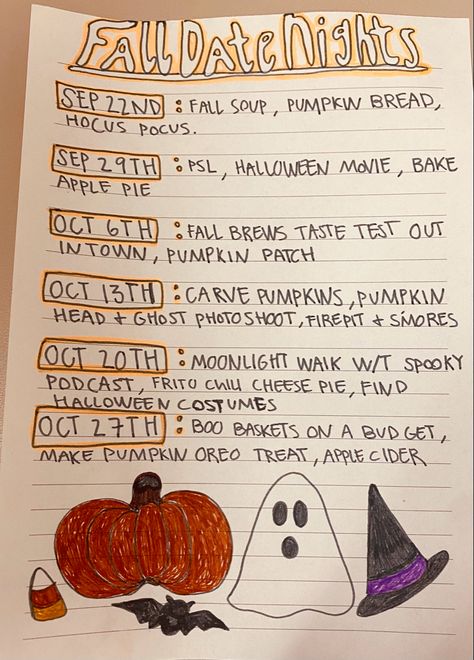 FALL DATE NIGHTS
SEP 22ND : FALL SOUP, PUMPKIN BREAD,
HOCUS POCUS.
SEP 29TH : PSL, HALLOWEEN MOVIE, BAKE
APPLE PIE
OCT 6TH : FALL BREWS TASTE TEST OUT
IN TOWN, PUMPKIN PATCH
OCT 13TH : CARVE PUMPKINS, PUMPKIN
HEAD + GHOST PHOTOSHOOT, FIREPIT + S'MORES
OCT 20TH : MOONLIGHT WALK W/T SPOOKY
PODCAST, FRITO CHILI CHEESE PIE, FIND
HALLOWEEN COSTUMES
OCT 27TH : BOO BASKETS ON A BUDGET,
MAKE PUMPKIN OREO TREAT, APPLE CIDER